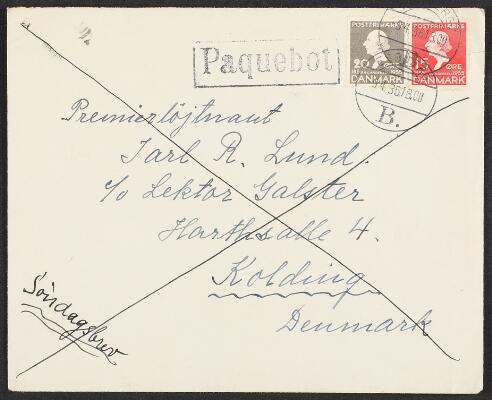 2.
Paquebot
POSTFRIMÆRKE
20
DANMARK
POSTFRIMÆRKE
15 ØRE
DANMARK
4.36.18.00
B.
Premierløjtnaut
Jarl R. Lund.
c/o Lektor Galster
Harthsalle 4.
Kolding
Denmark
Söndagsbrev